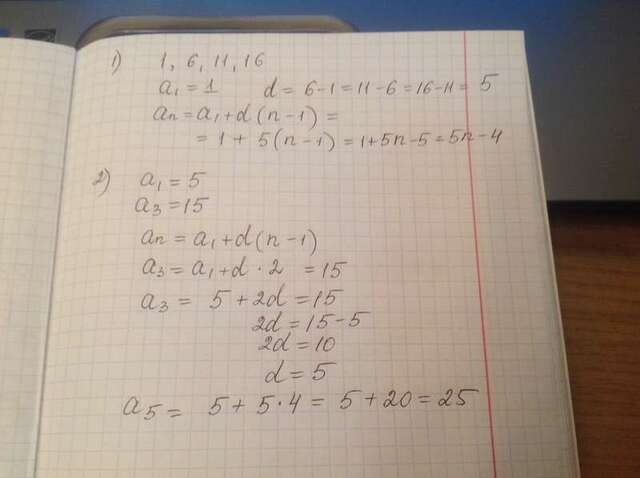 1) 1, 6, 11, 16
a₁ = 1 d = 6-1 = 11-6 = 16-11 = 5
aₙ = a₁ + d(n-1) =
= 1 + 5(n-1) = 1+5n-5 = 5n-4
2) a₁ = 5
a₃ = 15
aₙ = a₁ + d(n-1)
a₃ = a₁ + d · 2 = 15
a₃ = 5 + 2d = 15
2d = 15-5
2d = 10
d = 5
a₅ = 5 + 5·4 = 5 + 20 = 25